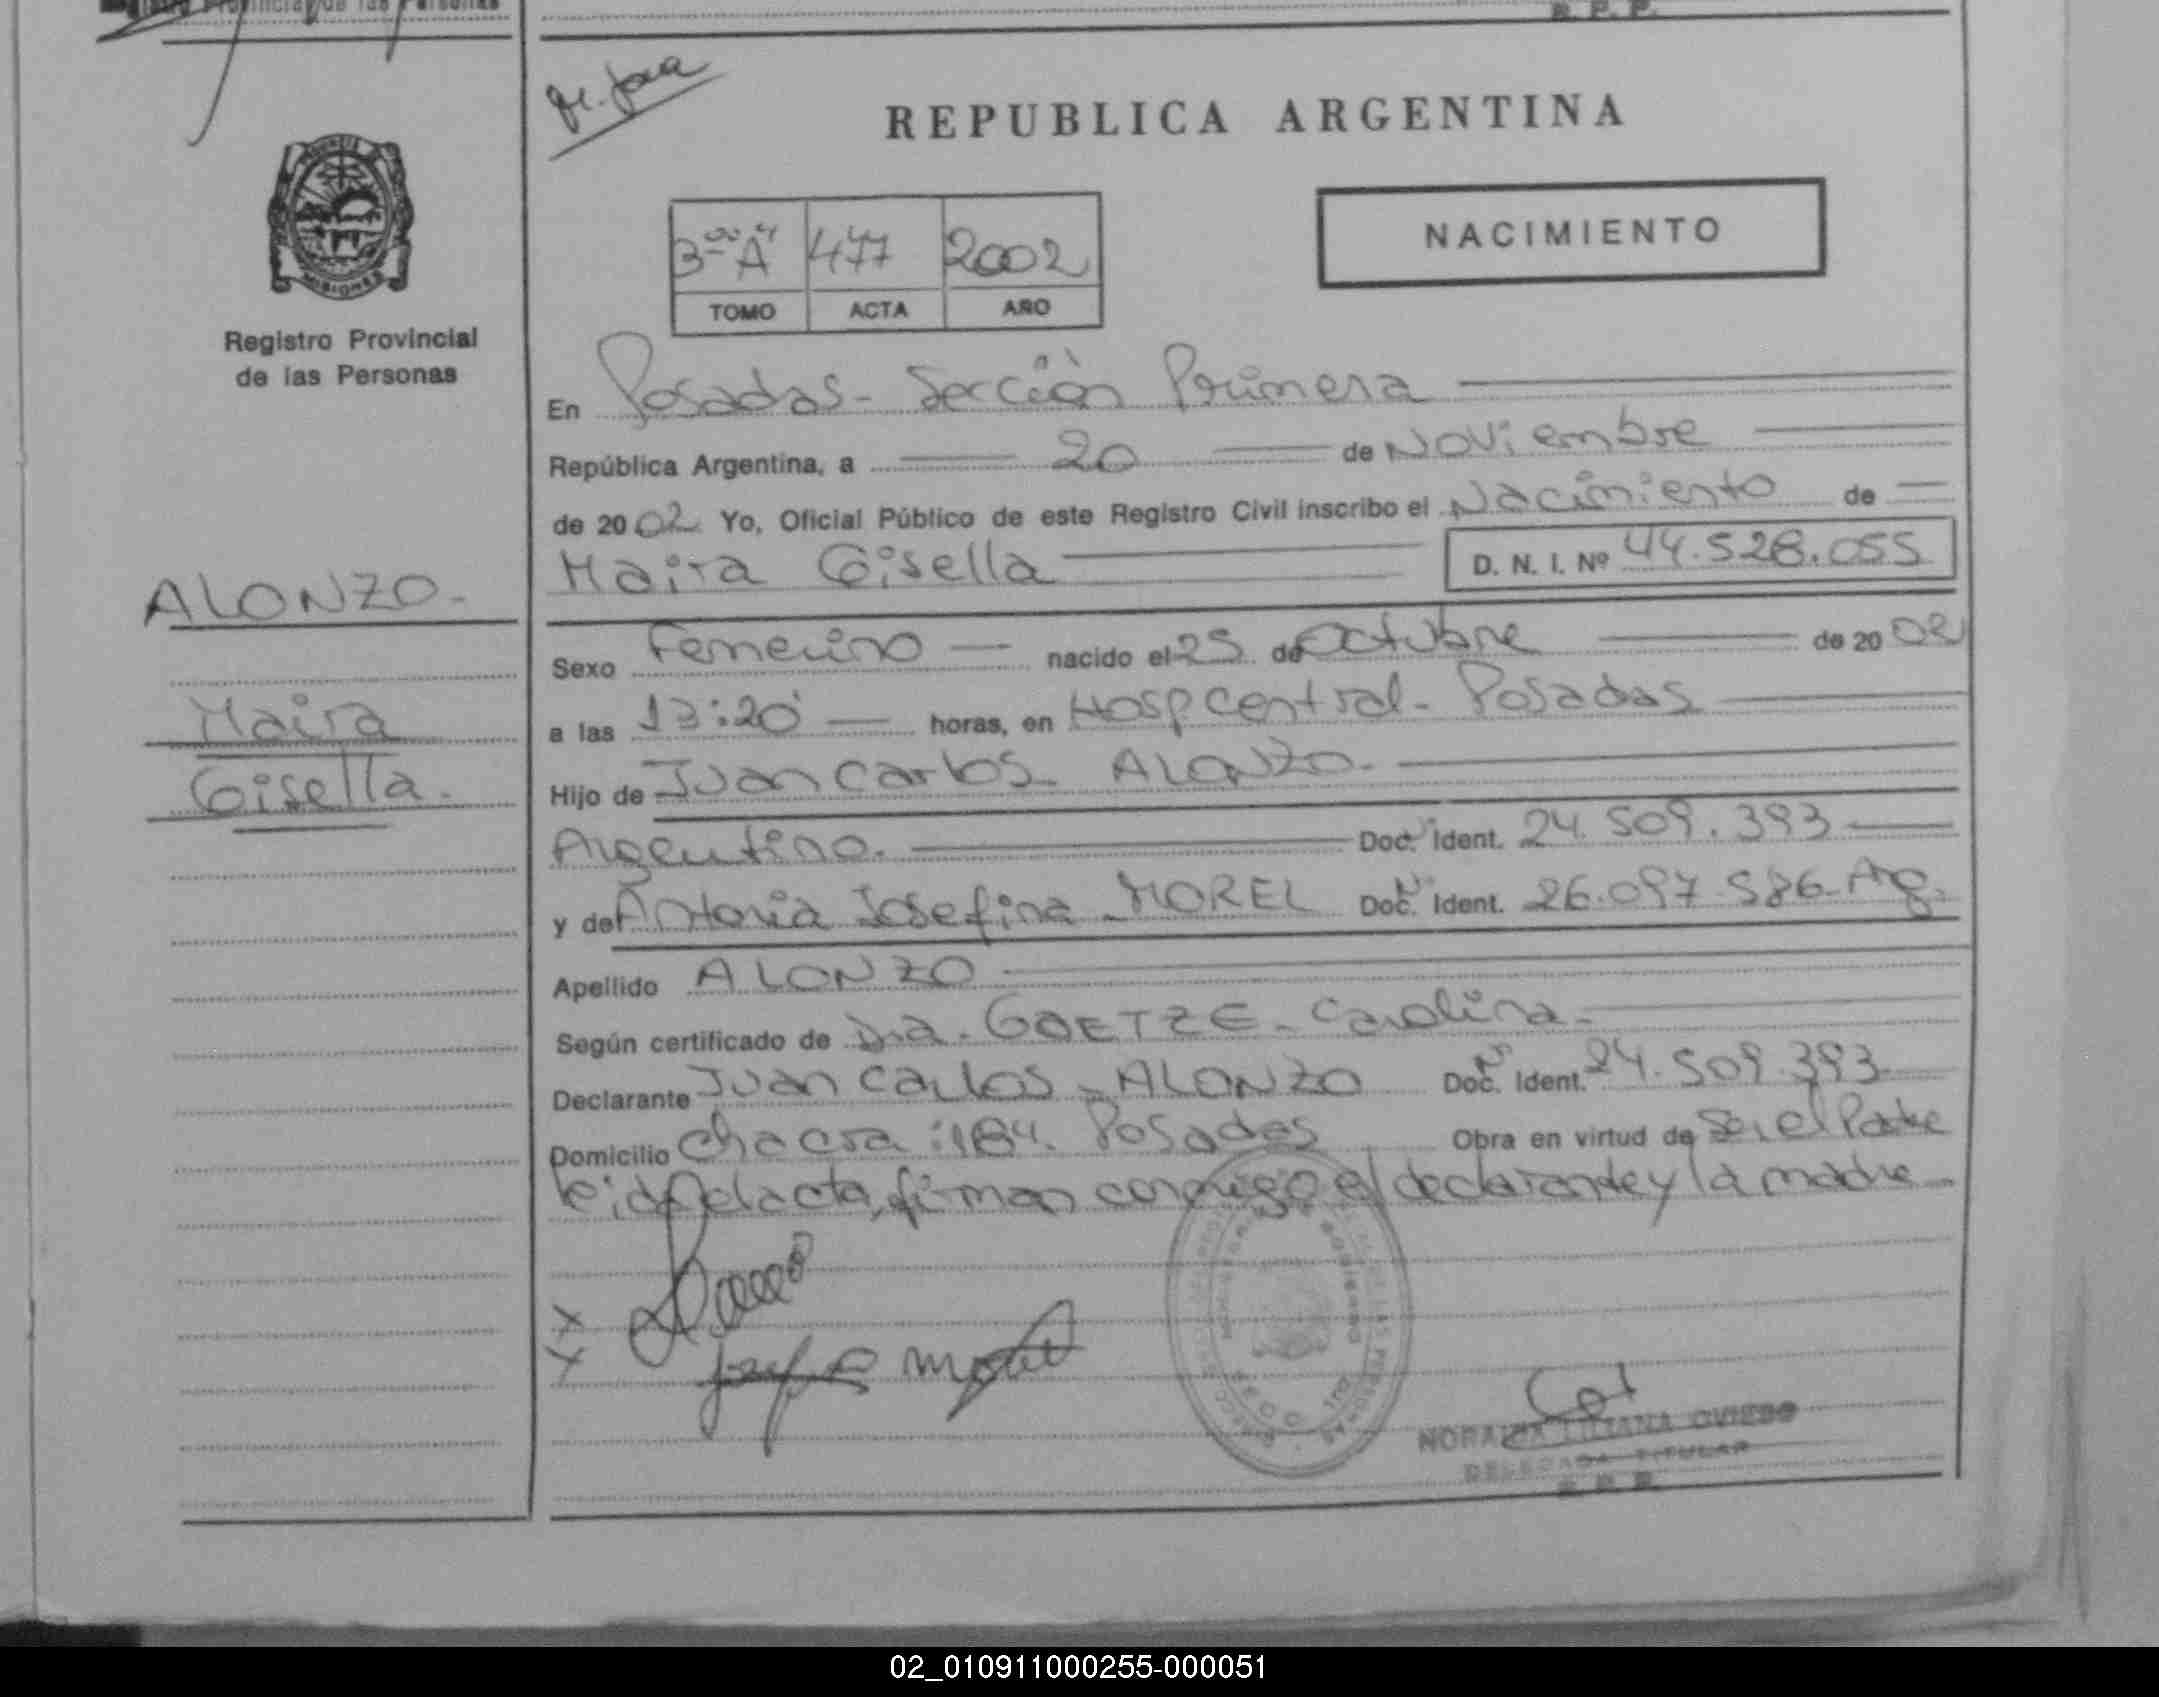 Registro Provincial de las Personas
R. P. P.
REPUBLICA ARGENTINA
MISIONES
3º "A" 477 2002
TOMO ACTA AÑO
NACIMIENTO
Registro Provincial
de las Personas
En Posadas - Sección Primera
República Argentina, a 20 de Noviembre
de 20 02 Yo, Oficial Público de este Registro Civil inscribo el Nacimiento de
Maira Gisella D. N. I. Nº 44.528.055
ALONZO.
Maira
Gisella.
Sexo Femenino nacido el 25 de Octubre de 20 02
a las 13:20 horas, en Hosp Central - Posadas
Hijo de Juan Carlos ALONZO.
Argentino. Doc. Nº Ident. 24.509.393
y de Antonia Josefina MOREL Doc. Nº Ident. 26.097.586 - Arg.
Apellido ALONZO
Según certificado de Dra. GOETZE - Carolina -
Declarante Juan Carlos - ALONZO Doc. Nº Ident. 24.509.393
Domicilio Chacra: 184. Posadas Obra en virtud de Ser el Padre
leida el acta, firman conmigo el declarante y la madre
X
X
NORAIDA LILIANA OVIEDO
DELEGADA TITULAR
R. P. P.
02_010911000255-000051